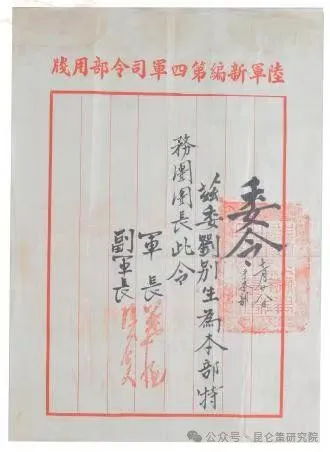 陸軍新編第四軍司令部用牋
委令
茲委劉別生為本部特
務團團長此令
軍長 葉挺
副軍長
公众号·昆仑策研究院